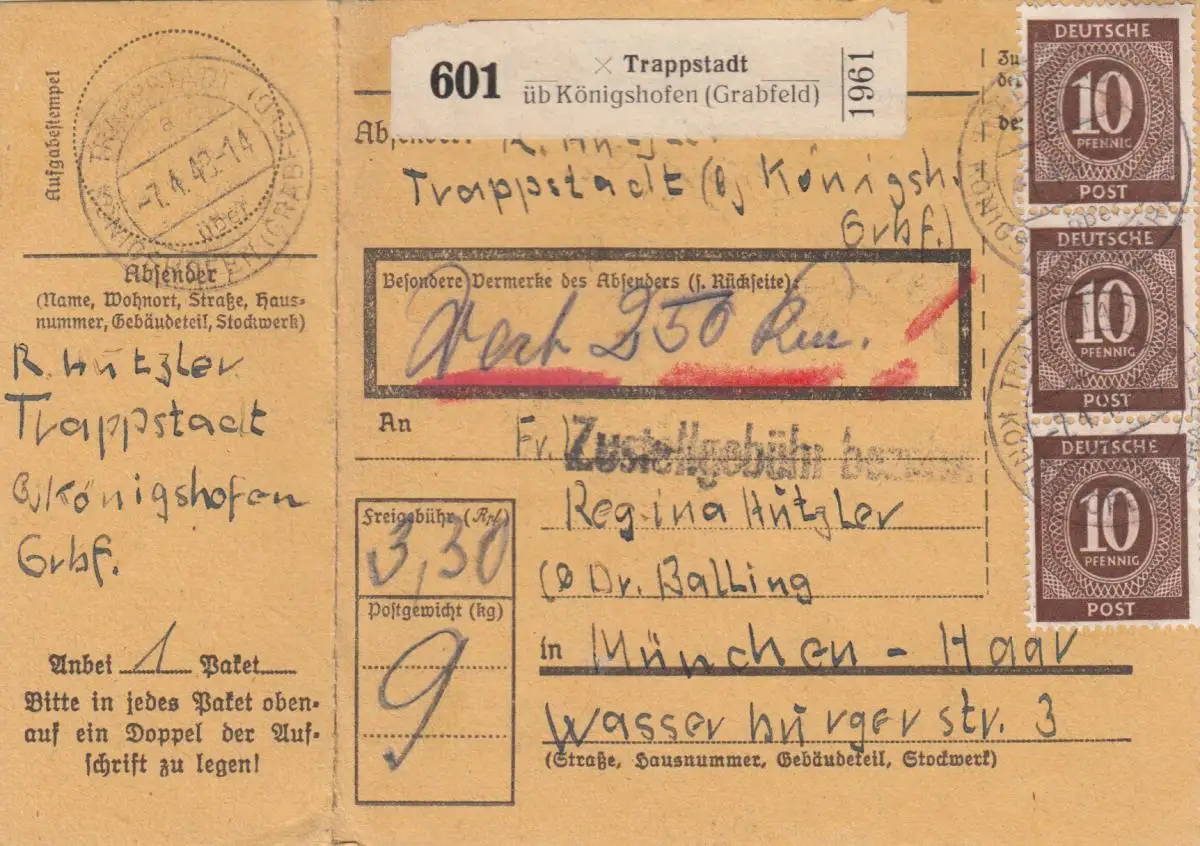 Aufgabestempel
TRAPPSTADT
über
KÖNIGSHOFEN (GRABFELD)
-7.4.48-14
a
Absender
(Name, Wohnort, Straße, Haus-
nummer, Gebäudeteil, Stockwerk)
R. Hutzler
Trappstadt
Königshofen
Grbf.
Anbei 1 Paket
Bitte in jedes Paket oben-
auf ein Doppel der Auf-
schrift zu legen!
601
× Trappstadt
üb Königshofen (Grabfeld)
1961
Absender:
R. Hutzler
Trappstadt Königsh.
Grbf.)
Besondere Vermerke des Absenders (s. Rückseite):
Wert 250 Rm.
An
Fr.
Zustellgebühr
Regina Hutzler
Dr. Balling
in München - Haar
Wasserburgerstr. 3
(Straße, Hausnummer, Gebäudeteil, Stockwerk)
Freigebühr (Rpf)
3,30
Postgewicht (kg)
9
DEUTSCHE
10
PFENNIG
POST
DEUTSCHE
10
PFENNIG
POST
DEUTSCHE
10
PFENNIG
POST